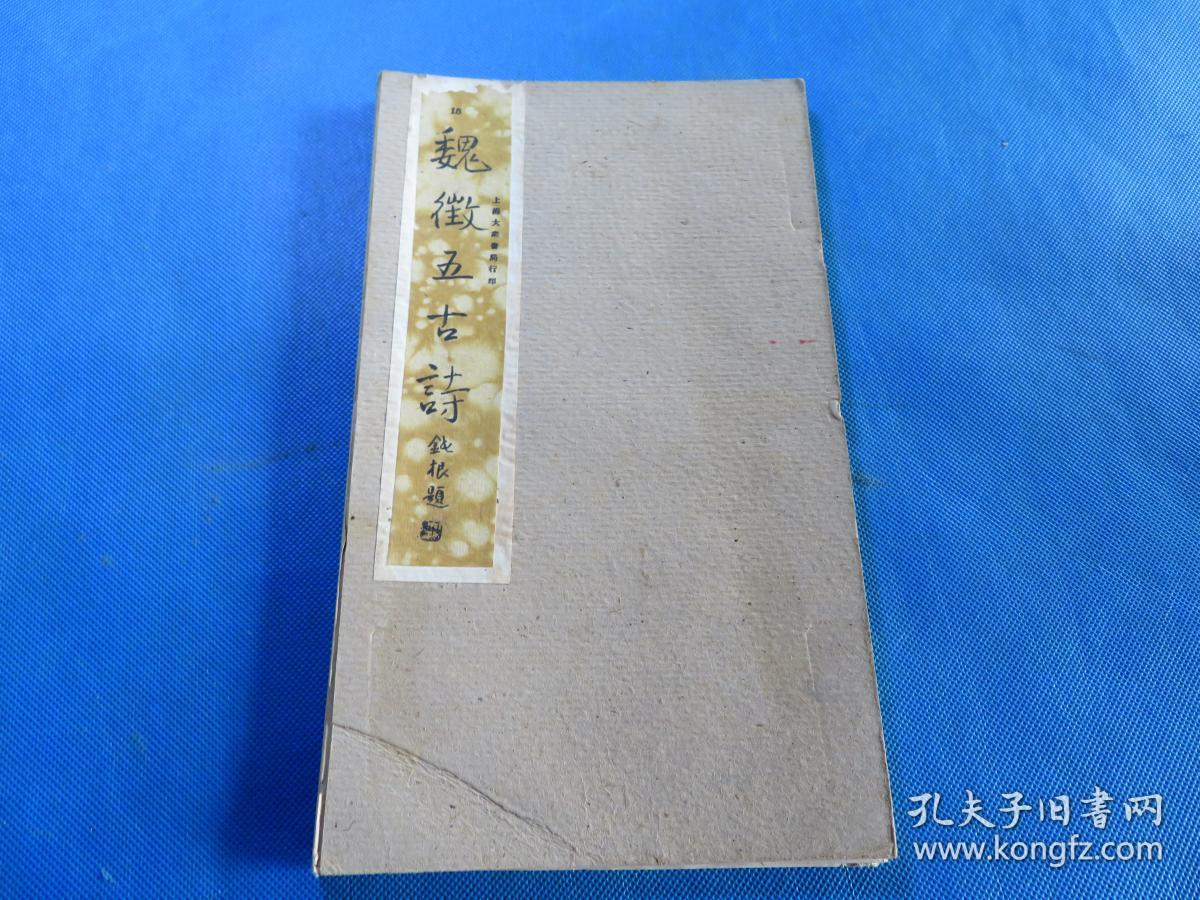 18
魏徵五古詩
上海大衆書局行印
鈍根題
孔夫子旧書网
www.kongfz.com